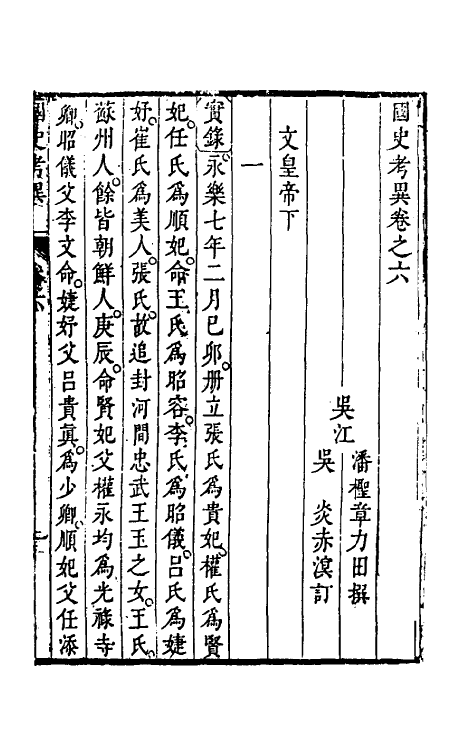 國史考異卷之六
吳江
潘檉章力田撰
吳 炎赤溟訂
文皇帝下
一
實錄永樂七年二月己卯。册立張氏爲貴妃。權氏爲賢
妃。任氏爲順妃。命王氏爲昭容。李氏爲昭儀。呂氏爲婕
妤。崔氏爲美人。張氏。故追封河間忠武王玉之女。王氏。
蘇州人。餘皆朝鮮人。庚辰。命賢妃父權永均爲光祿寺
卿。昭儀父李文命。婕妤父呂貴眞。爲少卿。順妃父任添
國史考異